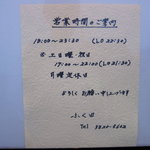 営業時間のご案内
18:00〜23:30 (LO 22:30)
※ 土日曜・祝日
17:00〜22:00 (LO 21:30)
月曜定休日
よろしくお願い申し上げます
ふく田
Tel